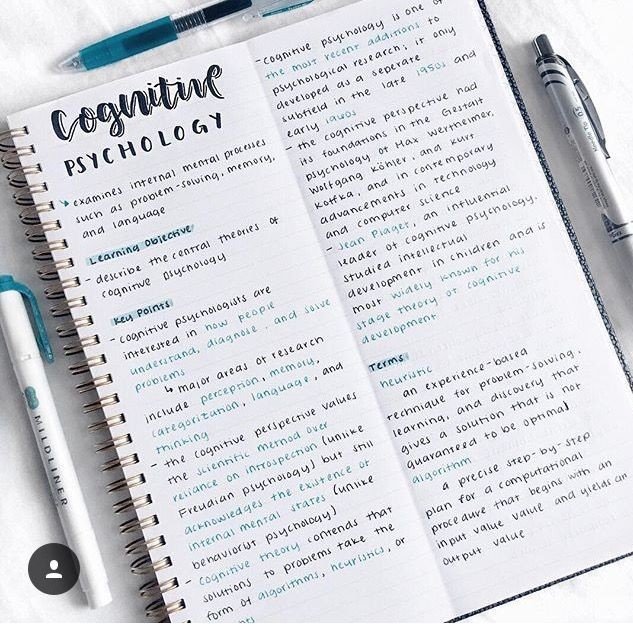 Cognitive
PSYCHOLOGY
↳ examines internal mental processes
such as problem-solving, memory,
and language
Learning Objective
- describe the central theories of
cognitive psychology
Key Points
- cognitive psychologists are
interested in how people
understand, diagnose, and solve
problems
↳ major areas of research
include perception, memory,
categorization, language, and
thinking
- the cognitive perspective values
the scientific method over
reliance on introspection (unlike
Freudian psychology) but still
acknowledges the existence of
internal mental states (unlike
behaviorist psychology)
- cognitive theory contends that
solutions to problems take the
form of algorithms, heuristics, or
- cognitive psychology is one of
the most recent additions to
psychological research; it only
developed as a seperate
subfield in the late 1950s and
early 1960s
- the cognitive perspective had
its foundations in the Gestalt
psychology of Max Wertheimer,
Wolfgang Köhler, and Kurt
Koffka, and in contemporary
advancements in technology
and computer science
- Jean Piaget, an influential
leader of cognitive psychology,
studied intellectual
development in children and is
most widely known for his
stage theory of cognitive
development
Terms
heuristic
an experience-based
technique for problem-solving,
learning, and discovery that
gives a solution that is not
guaranteed to be optimal
algorithm
a precise step-by-step
plan for a computational
procedure that begins with an
input value value and yields an
output value
MILDLINER